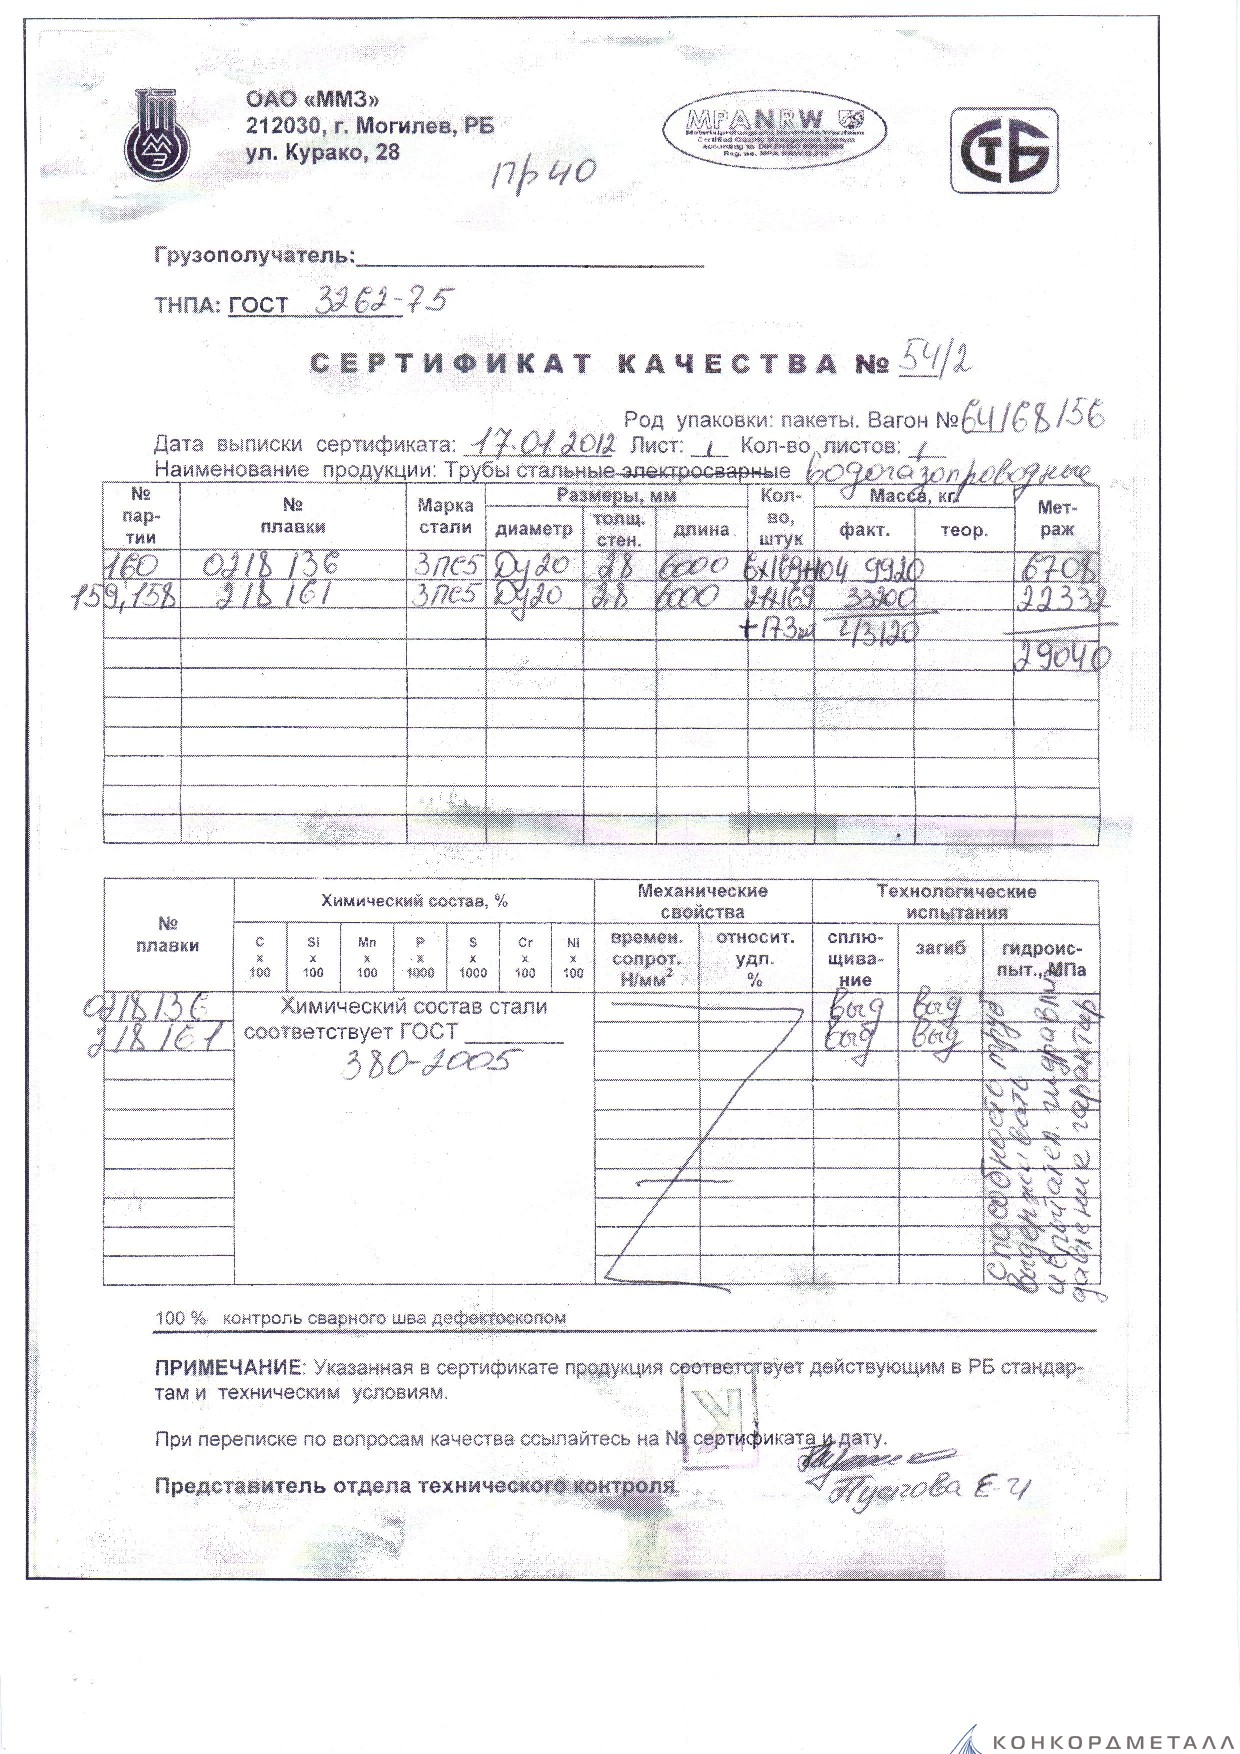 ОАО «ММЗ»
212030, г. Могилев, РБ
ул. Курако, 28
ММЗ
пр 40
MPANRW
СТБ
Грузополучатель:
ТНПА: ГОСТ 3262-75
СЕРТИФИКАТ КАЧЕСТВА № 54/2
Род упаковки: пакеты. Вагон № 64168156
Дата выписки сертификата: 17.01.2012 Лист: 1 Кол-во листов: 1
Наименование продукции: Трубы стальные электросварные водогазопроводные
№ партии № плавки Марка стали Размеры, мм Кол-во, штук Масса, кг. Метраж
диаметр толщ. стен. длина факт. теор.
160 0218136 3пс5 Ду20 2,8 6000 6х169+104 9920 6708
159,158 218161 3пс5 Ду20 2,8 6000 33200 22332
+173 43120
29040
№ плавки Химический состав, % Механические свойства Технологические испытания
C х 100 Si х 100 Mn х 100 P х 1000 S х 1000 Cr х 100 Ni х 100 времен. сопрот. Н/мм² относит. удл. % сплющивание загиб гидроиспыт., МПа
0218136 Химический состав стали выд выд
218161 соответствует ГОСТ выд выд
380-2005
способность труб
выдерживать
испытател. гидравлич
давление гарантир
100 % контроль сварного шва дефектоскопом
ПРИМЕЧАНИЕ: Указанная в сертификате продукция соответствует действующим в РБ стандар-
там и техническим условиям.
При переписке по вопросам качества ссылайтесь на № сертификата и дату.
Представитель отдела технического контроля
КОНКОРДМЕТАЛЛ